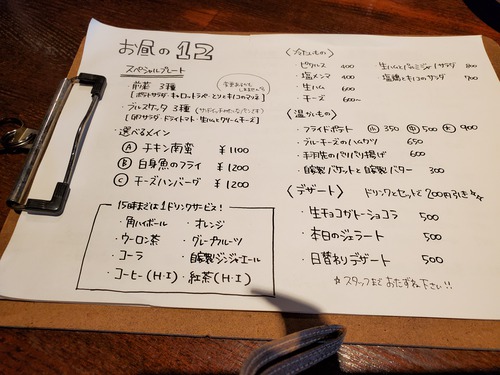 お昼の12
スペシャルプレート
・前菜 3種
[ポテトサラダ・キャロットラペ・とりとキノコのマリネ]
・ブルスケッタ 3種
ドライトマト・生ハムとクリームチーズ]
選べるメイン
Ⓐ チキン南蛮 ¥1100
Ⓑ 白身魚のフライ ¥1200
Ⓒ チーズハンバーグ ¥1200
15時までは1ドリンクサービス!
・角ハイボール ・オレンジ
・ウーロン茶 ・グレープフルーツ
・コーラ ・自家製ジンジャーエール
・コーヒー(H・I) ・紅茶(H・I)
〈冷たいもの〉
・ピクルス 400
・塩メンマ 400
・生ハム 600
・チーズ 600~
・塩鶏とキノコのサラダ 700
〈温かいもの〉
・フライドポテト 小 350 中 500 大 900
・ブルーチーズのハムカツ 650
・手羽先のパリパリ揚げ 600
・自家製バゲットと自家製バター 300
〈デザート〉 ドリンクとセットで200円引き
・生チョコガトーショコラ 500
・本日のジェラート 500
・日替わりデザート 500
☆スタッフまでおたずね下さい!!